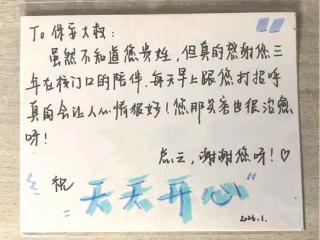 To 保安大叔：
虽然不知道您贵姓，但真的感谢您三
年在校门口的陪伴. 每天早上跟您打招呼
真的会让人心情很好！您那笑容也很治愈
呀！
总之，谢谢您呀！♡
祝
天天开心
2026.1.